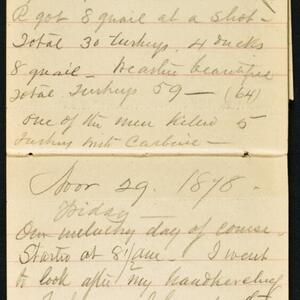 R got 8 quail at a shot -
Total 30 turkeys, 4 ducks
8 quail - Weather beautiful
Total Turkeys 59 - (64)
one of the men killed 5
Turkeys with Carbine -
Nov 29. 1878 -
Friday -
Our unlucky day of course -
Started at 8 1/2 am - I went
to look after my handkerchief